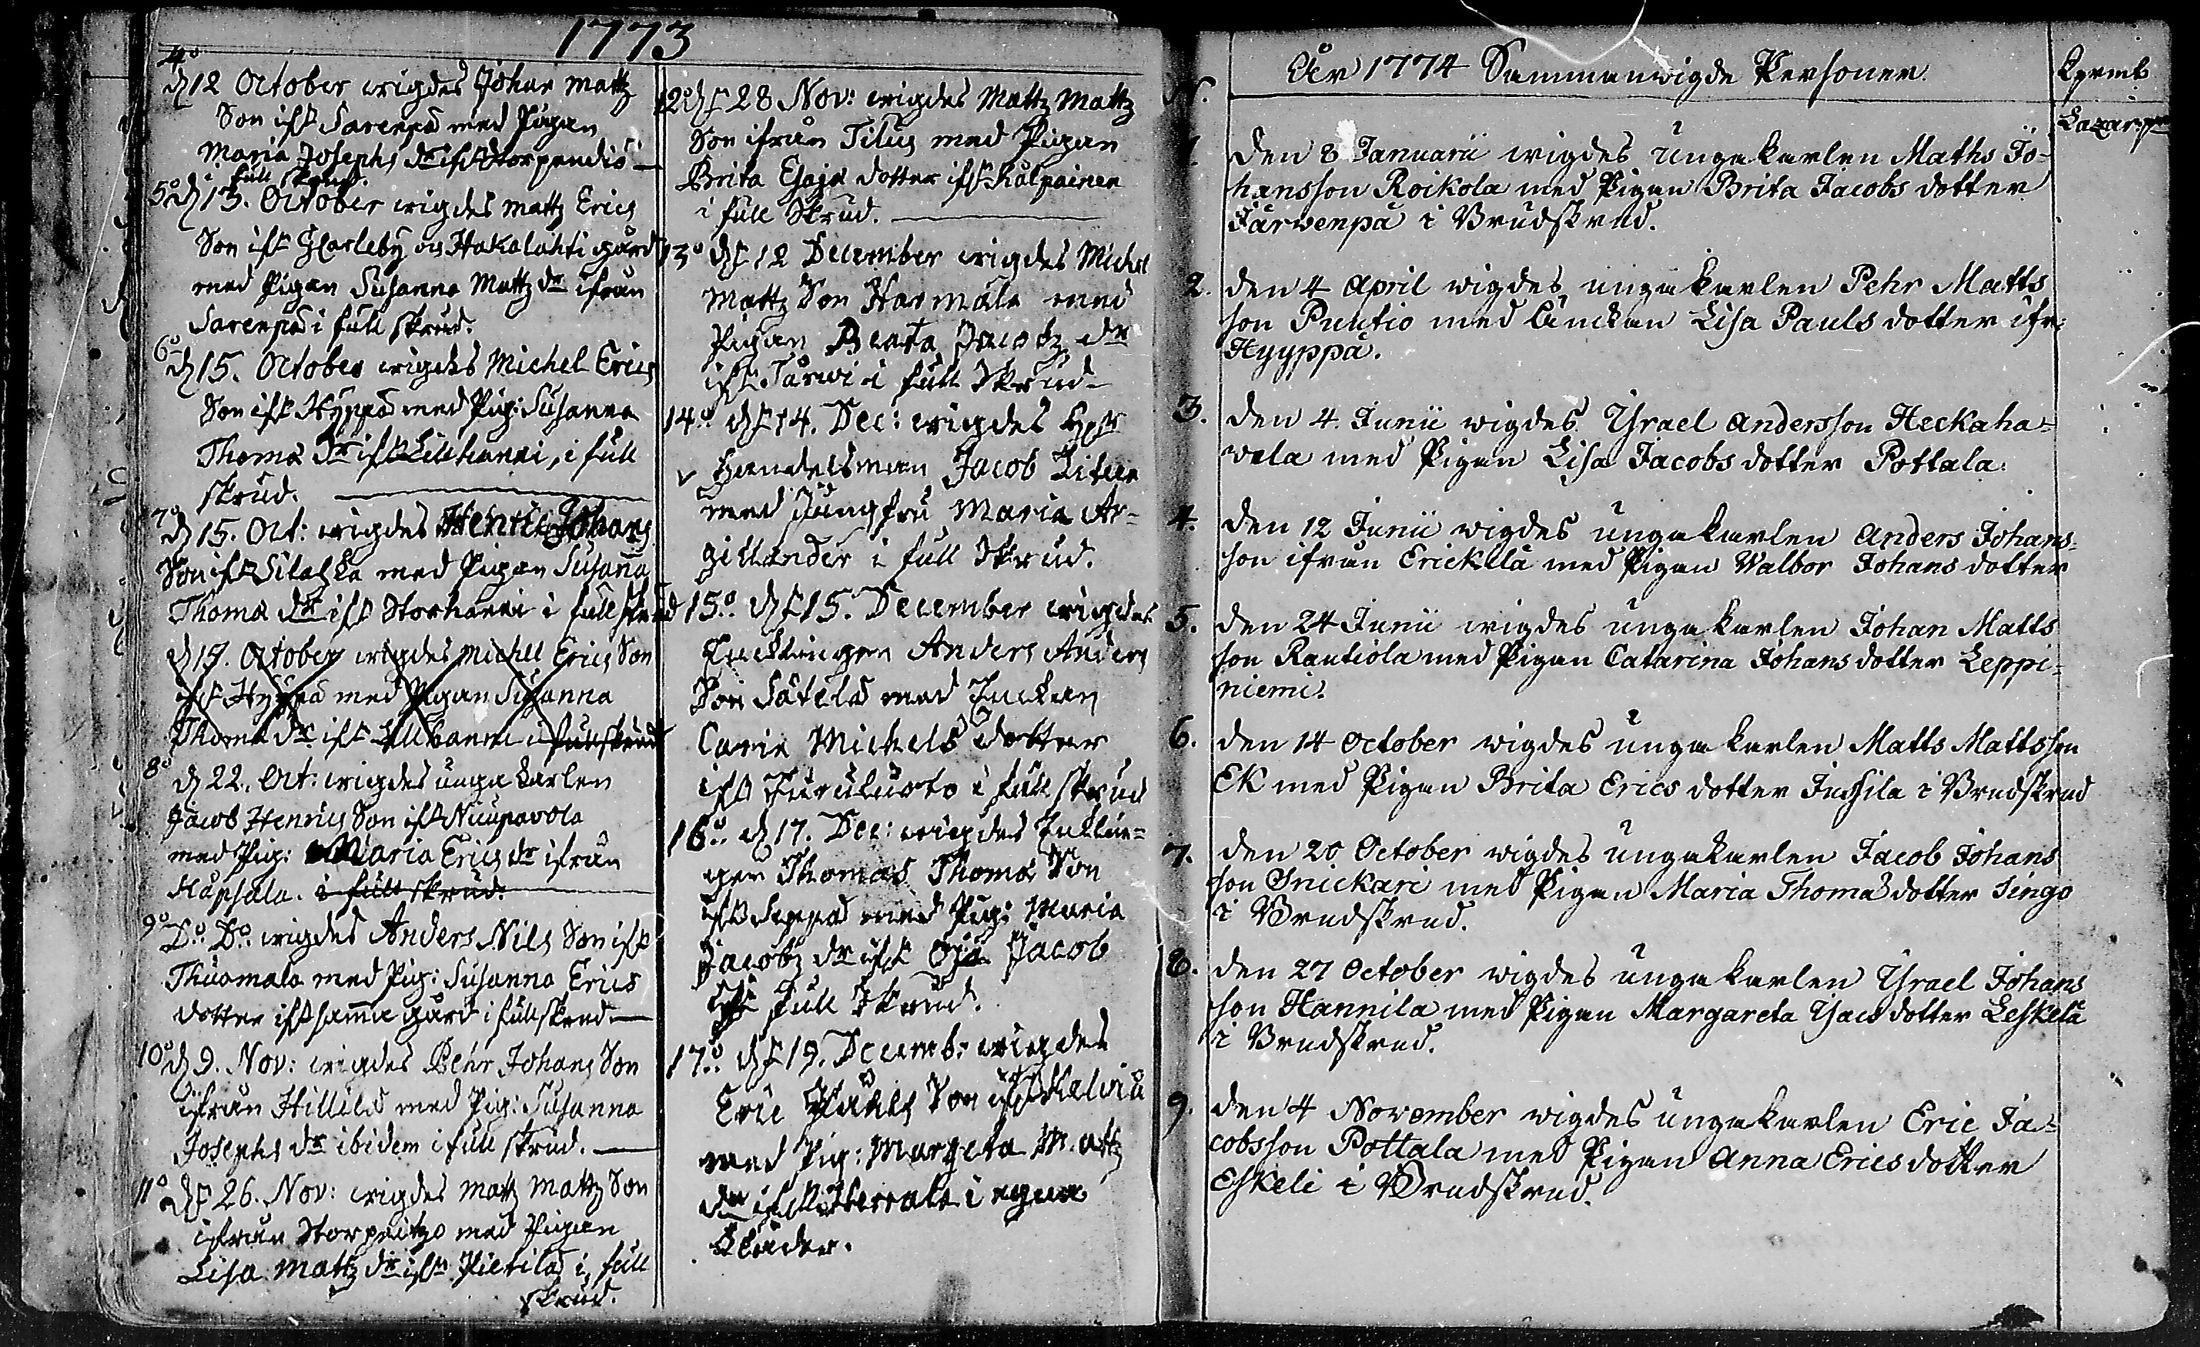 1773
4o
d 12 October wigdes Johan Mattz
Son ifr Sarenpä med Pigan
Maria Josephs dr ifr Storpendis
i full skrud.
5o d 13. October wigdes Mattz Erics
Son ifr Gkarleby och Hakalahti gård
med Pigan Susanna Mattz dr ifrån
Sarenpä i full skrud.
6o
d 15. October wigdes Michel Erics
Son ifr Hyppä med Pig: Susanna
Thomæ dr ifr Lillhanni, i full
skrud.
7o
d 15. Oct: wigdes Henric Johans
Son ifr med Pigan Susanna
Thomæ dr ifr Storhanni i full skrud
d 19. October wigdes Michel Erics Son
ifr Hyppä med Pigan Susanna
Thomæ dr ifr Lillhanni i full skrud
8o
d 22. Oct: wigdes unga karlen
Jacob Henrics Son ifr Niupavola
med Pig: Maria Erics dr ifrån
Hapsala. i full skrud.
9o
Do Do wigdes Anders Nils Son ifr
Thuomala med Pig: Susanna Erics
dotter ifr samma gård i full skrud.
10o d 9. Nov: wigdes Pehr Johans Son
ifrån Hillilä med Pig: Susanna
Josephs dr ibidem i full skrud.
11o d 26. Nov: wigdes Mattz Mattz Son
ifrån med Pigan
Lisa Mattz dr ifrn Pietilä i full
skrud.
12o d 28 Nov: wigdes Mattz Mattz
Son ifrån Tilus med Pigan
Brita Esajæ dotter ifr Kälpainen
i full Skrud.
13o d 12 December wigdes Michel
Mattz Son Harmala med
Pigan Beata Jacobz dr
ifr Järwi i full Skrud
14o d 14. Dec: wigdes
Handelsman Jacob
med Jungfru Maria Ar-
gillander i full Skrud.
15o d 15. December wigdes
Enklingen Anders Anders
Son Sätelä med Enckan
Carin Michels dotter
ifr i full skrud
16o d 17. Dec: wigdes Enklin-
gen Thomas Thomæ Son
ifr Seppä med Pig: Maria
Jacobz dr ifr Oja Jacob
i full Skrud.
17o d 19. Decemb: wigdes
Eric Son ifr Kelviå
med Pig: Margeta Mattz
dr ifr i egna
Kläder.
N.
År 1774 Sammanwigde Personer.
1 Den 8 Januarii wigdes ungakarlen Maths Jo-
hansson Roikola med Pigan Brita Jacobs dotter
Järwenpä i Brudskrud.
2. den 4 April wigdes ungakarlen Pehr Matts
son Puutio med Änckan Lisa Pauls dotter ifr:
Hyyppä.
3. den 4. Junii wigdes Ysrael Andersson Heckaha-
wela med Pigan Lisa Jacobs dotter Pottala.
4. den 12 Junii wigdes ungakarlen Anders Johans-
son ifrån Erickilä med Pigan Walbor Johans dotter
5. den 24 Junii wigdes ungakarlen Johan Matts
son Rautiola med Pigan Catarina Johans dotter Leppi-
niemi.
6. den 14 October wigdes ungakarlen Matts Mattsson
Ek med Pigan Brita Erics dotter Jussila i Brudskrud
7. den 20 October wigdes ungakarlen Jacob Johans
son Snickari med Pigan Maria Thomæ dotter Singo
i Brudskrud.
8. den 27 October wigdes ungakarlen Ysrael Johans
son Hannila med Pigan Margareta Ysacs dotter Leskelä
i Brudskrud.
9. den 4 November wigdes ungakarlen Eric Ja-
cobsson Pottala med Pigan Anna Ericsdotter
Eskeli i Brudskrud.